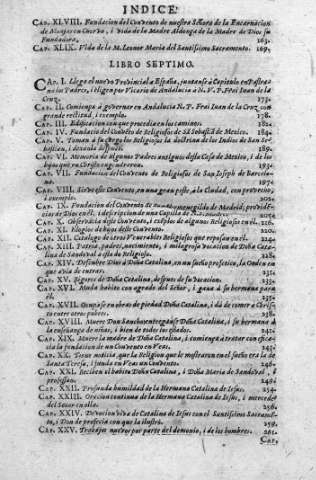 INDICE.
CAP. XLVIII. Fundacion del Convento de nuestra Señora de la Encarnacion
de Alcaçer en Oncto, i vida de la Madre Aldonça de la Madre de Dios su
Fundadora. 165.
CAP. XLIX. Vida de la M. Leonor Maria del Santissimo Sacramento. 169.
LIBRO SEPTIMO.
CAP. I. Llega el nuevo Provincial a España, juntanse à Capitulo en Pastra-
na los Padres, i eligen por Vicario de Andalucia à N. V. P. Frei Juan de la
Cruz. 173.
CAP. II. Comiença à governar en Andalucia N. P. Frei Juan de la Cruz con
grande rectitud, i exemplo. 178.
CAP. III. Edificacion que procedia en los caminos. 182.
CAP. IV. Fundacion del Convento de Religiosos de S. Sebastiā de Mexico. 184.
CAP. V. Toman à su cargo los Religiosos la doctrina de los Indios de San Se-
bastian, i dexanla despues. 189.
CAP. VI. Memoria de algunos Padres antiguos deste Casa de Mexico, i de los
CAP. VII. Fundacion del Convento de Religiosos de San Joseph de Barcelo-
na. 197.
CAP. VIII. Sirve este Convento, en una gran peste, à la Ciudad, con provecho
i exemplo. 202.
CAP. IX. Fundacion del Convento de San Hermenegildo de Madrid, provide-
cias de Dios en èl, i descripcion de una Capilla de N.
CAP. X. Observancia deste Convento, i exemplo de algunos Religiosos en èl.
CAP. XI. Elogios de hijos deste Convento.
CAP. XII. Catalogo de otros Venerables Religiosos que reposan en èl. 224.
CAP. XIII. Patria, padres, nacimiento, i milagrosa vocacion de Doña Cata-
lina de Sandoval à esta do Religiosa. 228.
CAP. XIV. Descubre Dios à Doña Catalina, en un sueño profetico, la Orden en
que avia de entrar. 231.
CAP. XV. Rigores de Doña Catalina, despues de su vocacion. 233.
CAP. XVI. Muda habito con agrado del Señor, i gana à su hermana para
èl. 235.
CAP. XVII. Ocupase en obras de piedad Doña Catalina, i dà de comer à Christo
to entre otros pobres. 238.
CAP. XVIII. Muere Don Sancho, entregase Doña Catalina, i su hermana à
la enseñança de niñas, i bien de todos los estados. 241.
CAP. XIX. Muere la madre de Doña Catalina, i comiença à tratar con efica-
cia la fundacion de un Convento en Veas. 243.
CAP. XX. Tiene noticia, que la Religion que le mostraron en el sueño era la de
Santa Teresa, i funda en Veas un Convento. 246.
CAP. XXI. Reciben el habito Doña Catalina, i Doña Maria de Sandoval, i
profession. 248.
CAP. XXII. Profunda humildad de la Hermana Catalina de Iesus. 254.
CAP. XXIII. Oracion continua de la Hermana Catalina de Iesus, i mercedes
del Señor en ella. 256.
CAP. XXIV. Devocion viva de Catalina de Iesus con el Santissimo Sacramen-
to, i Don de profecia con que la ilustrò. 259.
CAP. XXV. Trabajos nuevos por parte del demonio, i de los hombres. 261.
Cap.